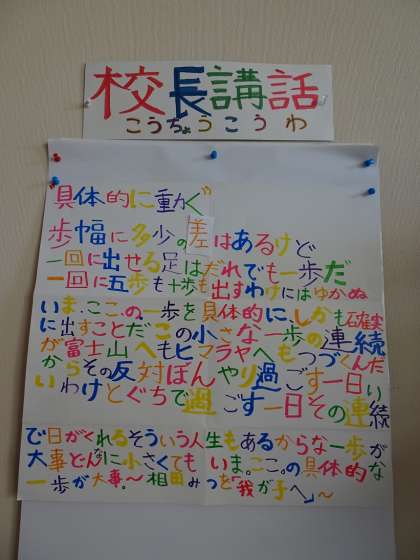 校長講話
こうちょうこうわ
具体的に動ぐ
歩幅に多少の差はあるけど
一回に出せる足はだれでも一歩だ
一回に五歩も十歩も出すわけにはゆかぬ
いま.ここ.の一歩を具体的に、しかも確実
に出すことだこの小さな一歩の連続
が富士山へもヒマラヤへもつづくんだ
からその反対ぼんやり過ごす一日い
いわけとぐちで過ごす一日その連続
で日がくれるそういう人生もあるからな一歩が
大事どんなに小さくてもいま。ここ。の具体的な
一歩が大事.〜相田みつを「我が子へ」〜